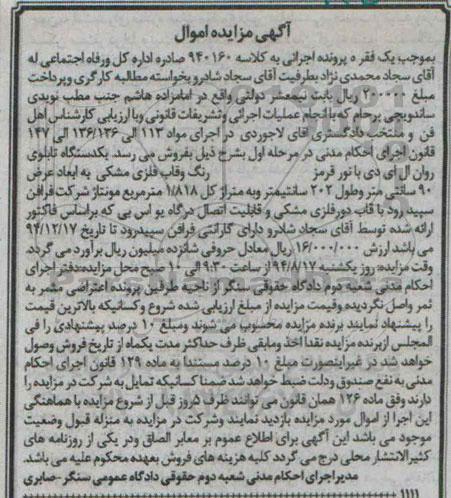 آگهی مزایده اموال
بموجب یک فقره پرونده اجرائی به کلاسه ۹۴۰۱۶۰ صادره اداره کل ورفاه اجتماعی له
آقای سجاد محمدی نژاد بطرفیت آقای سجاد شادرو بخواسته مطالبه کارگری وپرداخت
مبلغ ۲۰۰۰۰۰ ریال بابت نیمعشر دولتی واقع در امامزاده هاشم جنب مطب نویدی
ساندویچی برحام که با انجام عملیات اجرائی وتشریفات قانونی وبا ارزیابی کارشناس اهل
فن و منتخب دادگستری آقای لاجوردی در اجرای مواد ۱۱۳ الی ۱۳۶/۱۲۶ الی ۱۴۷
قانون اجرای احکام مدنی در مرحله اول بشرح ذیل بفروش می رسد. یکدستگاه تابلوی
روان ال ای دی با نور قرمز رنگ وقاب فلزی مشکی به ابعاد عرض
۹۰ سانتی متر وطول ۲۰۲ سانتیمتر وبه متراژ کل ۱/۸۱۸ مترمربع مونتاژ شرکت فرافن
سپید رود با قاب دور فلزی مشکی و قابلیت اتصال درگاه یو اس بی که براساس فاکتور
ارائه شده توسط آقای سجاد شادرو دارای گارانتی فرافن سپیدرود تا تاریخ ۹۴/۱۲/۱۷
می باشد ارزش ۱۶/۰۰۰/۰۰۰ ریال معادل حروفی شانزده میلیون ریال برآورد می گردد
وقت مزایده: روز یکشنبه ۹۴/۸/۱۷ از ساعت ۹:۳۰ الی ۱۰ صبح محل مزایده: دفتر اجرای
احکام مدنی شعبه دوم دادگاه حقوقی سنگر از ناحیه طرفین پرونده اعتراضی مثمر به
ثمر واصل نگردیده وقیمت مزایده از مبلغ ارزیابی شده شروع وکسانیکه بالاترین قیمت
را پیشنهاد نمایند برنده مزایده محسوب می شوند ومبلغ ۱۰ درصد پیشنهادی را فی
المجلس ازبرنده مزایده نقدا اخذ ومابقی ظرف حداکثر مدت یکماه از تاریخ فروش وصول
خواهد شد در غیراینصورت مبلغ ۱۰ درصد مستندا به ماده ۱۲۹ قانون اجرای احکام
مدنی به نفع صندوق ودلت ضبط خواهد شد ضمنا کسانیکه تمایل به شرکت در مزایده را
دارند وفق ماده ۱۲۶ همان قانون می توانند ظرف ۵ روز قبل از شروع مزایده با هماهنگی
این اجرا از اموال مورد مزایده بازدید نمایند وشرکت در مزایده به منزله قبول وضعیت
موجود می باشد این آگهی برای اطلاع عموم بر معابر الصاق ودر یکی از روزنامه های
کثیرالانتشار محلی درج می گردد کلیه هزینه های فروش بعهده محکوم علیه می باشد.
مدیر اجرای احکام مدنی شعبه دوم حقوقی دادگاه عمومی سنگر - صابری
۱۱۱۱